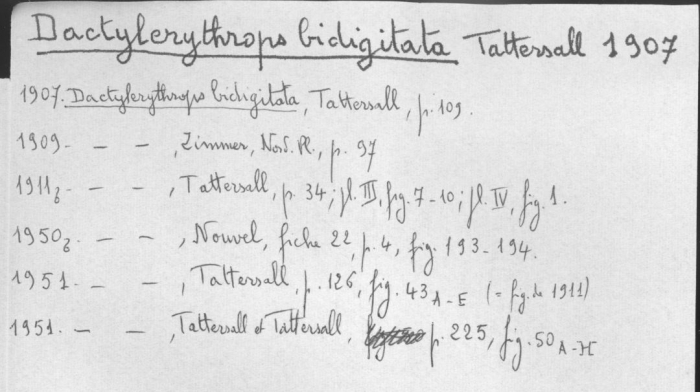 Dactylerythrops bidigitata Tattersall 1907
1907. Dactylerythrops bidigitata, Tattersall, p. 109.
1909. — — , Zimmer, Nord. Pl., p. 97
1911b. — — , Tattersall, p. 34; pl. III, fig. 7-10; pl. IV, fig. 1.
1950b. — — , Nouvel, fiche 22, p. 4, fig. 193-194.
1951. — — , Tattersall, p. 126, fig. 43 A-E (= fig. de 1911)
1951. — — , Tattersall et Tattersall, p. 225, fig. 50 A-H